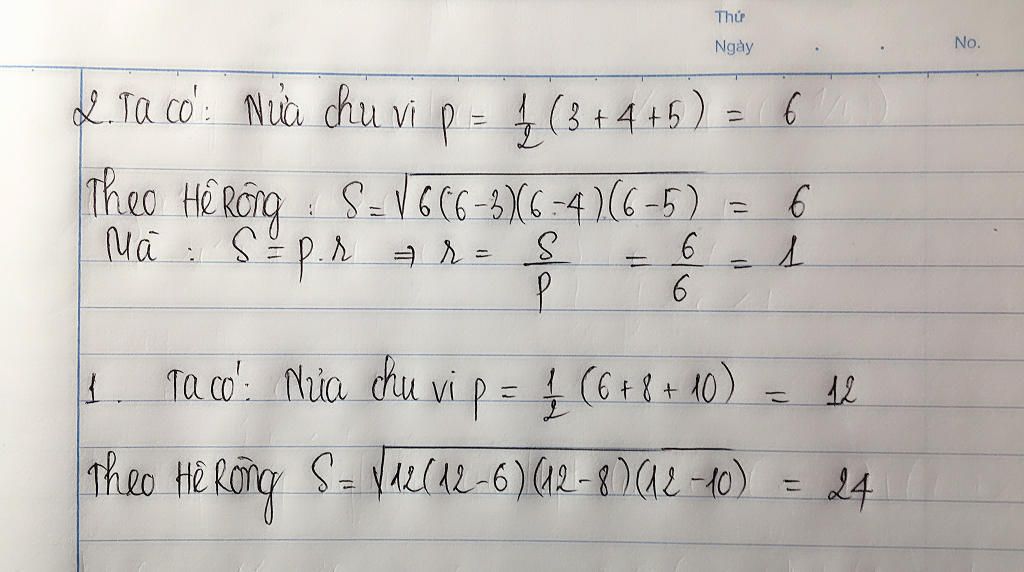 Thứ
Ngày . . No.
2. Ta có: Nửa chu vi p = 1/2 (3 + 4 + 5) = 6
Theo Hê Rông : S = √6(6-3)(6-4)(6-5) = 6
Mà : S = p.r ⇒ r = S/p = 6/6 = 1
1. Ta có: Nửa chu vi p = 1/2 (6 + 8 + 10) = 12
Theo Hê Rông S = √12(12-6)(12-8)(12-10) = 24